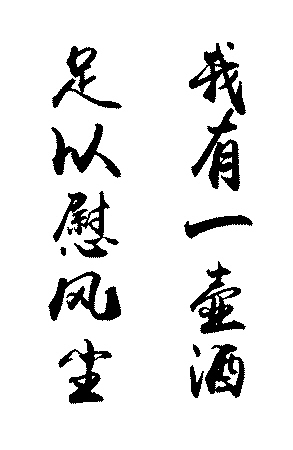 我有一壶酒
足以慰风尘